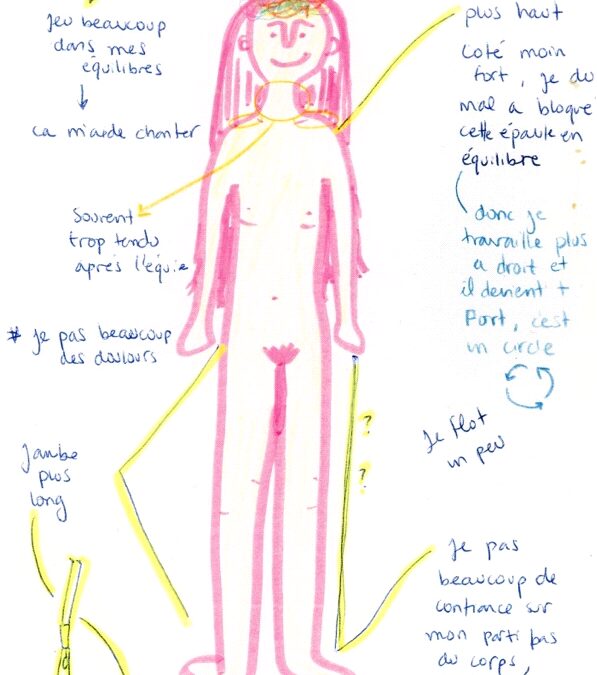 Jeu beaucoup
dans mes
équilibres
ça m'aide chanter
Souvent
trop tendu
après l'équie
* Je pas beaucoup
des doulours
Jambe
plus
long
plus haut
Coté moin
fort, je du
mal a bloqué
cette épaule en
équilibre
donc je
travaille plus
a droit et
il devient +
Fort, c'est
un circle
Je flot
un peu
?
?
Je pas
beaucoup de
confiance sur
mon parti pas
du corps,